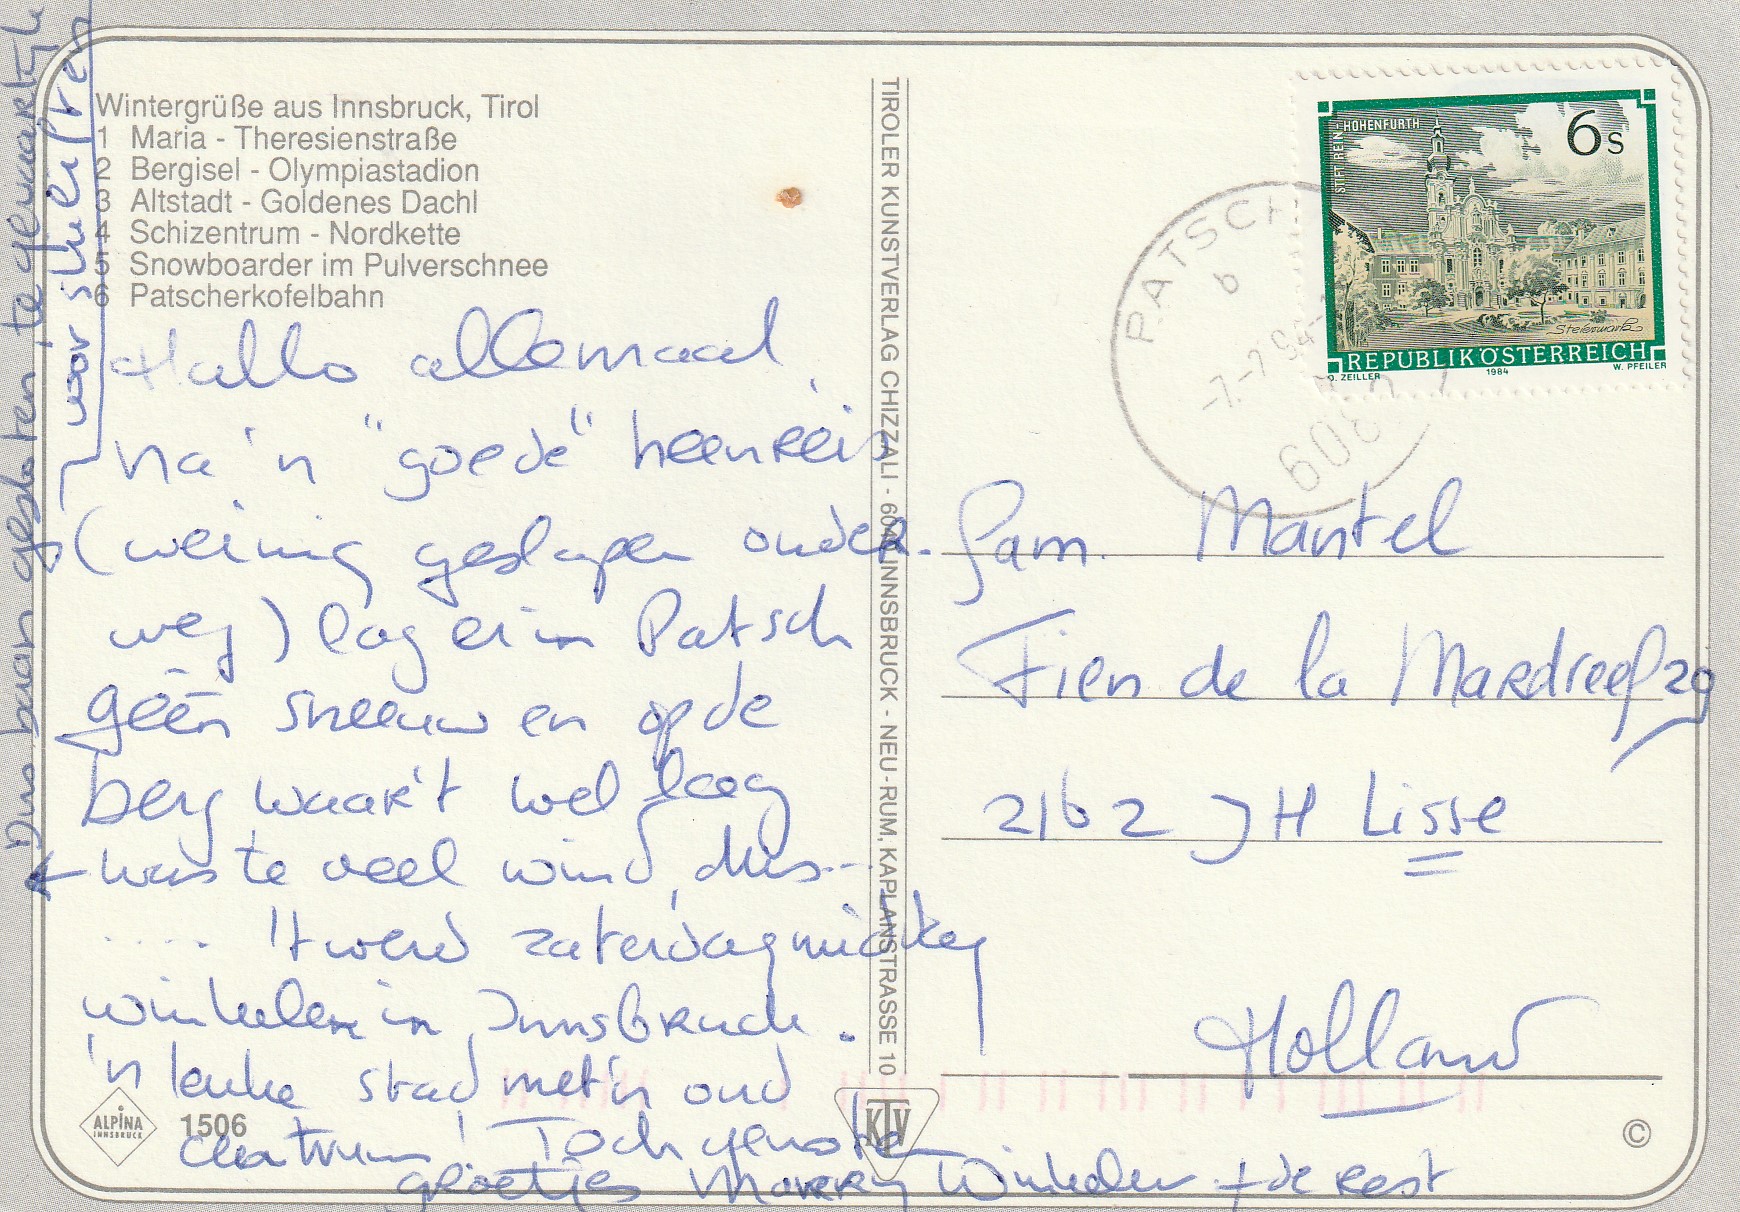 Wintergrüße aus Innsbruck, Tirol
1 Maria - Theresienstraße
2 Bergisel - Olympiastadion
3 Altstadt - Goldenes Dachl
4 Schizentrum - Nordkette
5 Snowboarder im Pulverschnee
6 Patscherkofelbahn
Hallo allemaal,
na 'n "goede" heenreis
(weinig geslapen onder-
weg) lag er in Patsch
géén sneeuw en op de
berg waar't wel lag
was te veel wind, dus...
.... 't werd zaterdagmiddag
winkelen in Innsbruck.
'n leuke stad met'n oud
centrum! Toch genoten
groetjes Marry Winkeler + de rest
baan gesloten, te gevaarlijk
voor skieliften
TIROLER KUNSTVERLAG CHIZZALI - 6040 INNSBRUCK - NEU-RUM, KAPLANSTRASSE 10
STIFT REIN-HOHENFURTH
6 S
Steiermark
REPUBLIK ÖSTERREICH
O. ZEILLER 1984 W. PFEILER
PATSCH
b
-7.-2.94-
608
Fam. Mantel
Fien de la Mardreef 29
2162 JH Lisse
Holland
ALPINA
INNSBRUCK
1506
KTV
©